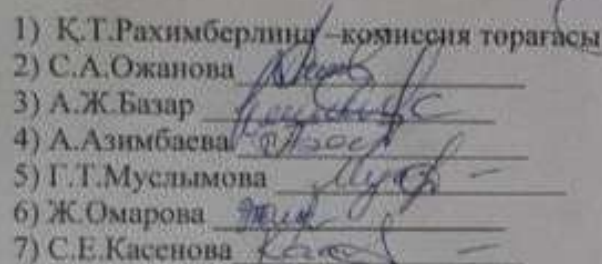 1) Қ.Т.Рахимберлина –комиссия торағасы
2) С.А.Ожанова
3) А.Ж.Базар
4) А.Азимбаева
5) Г.Т.Муслымова
6) Ж.Омарова
7) С.Е.Касенова